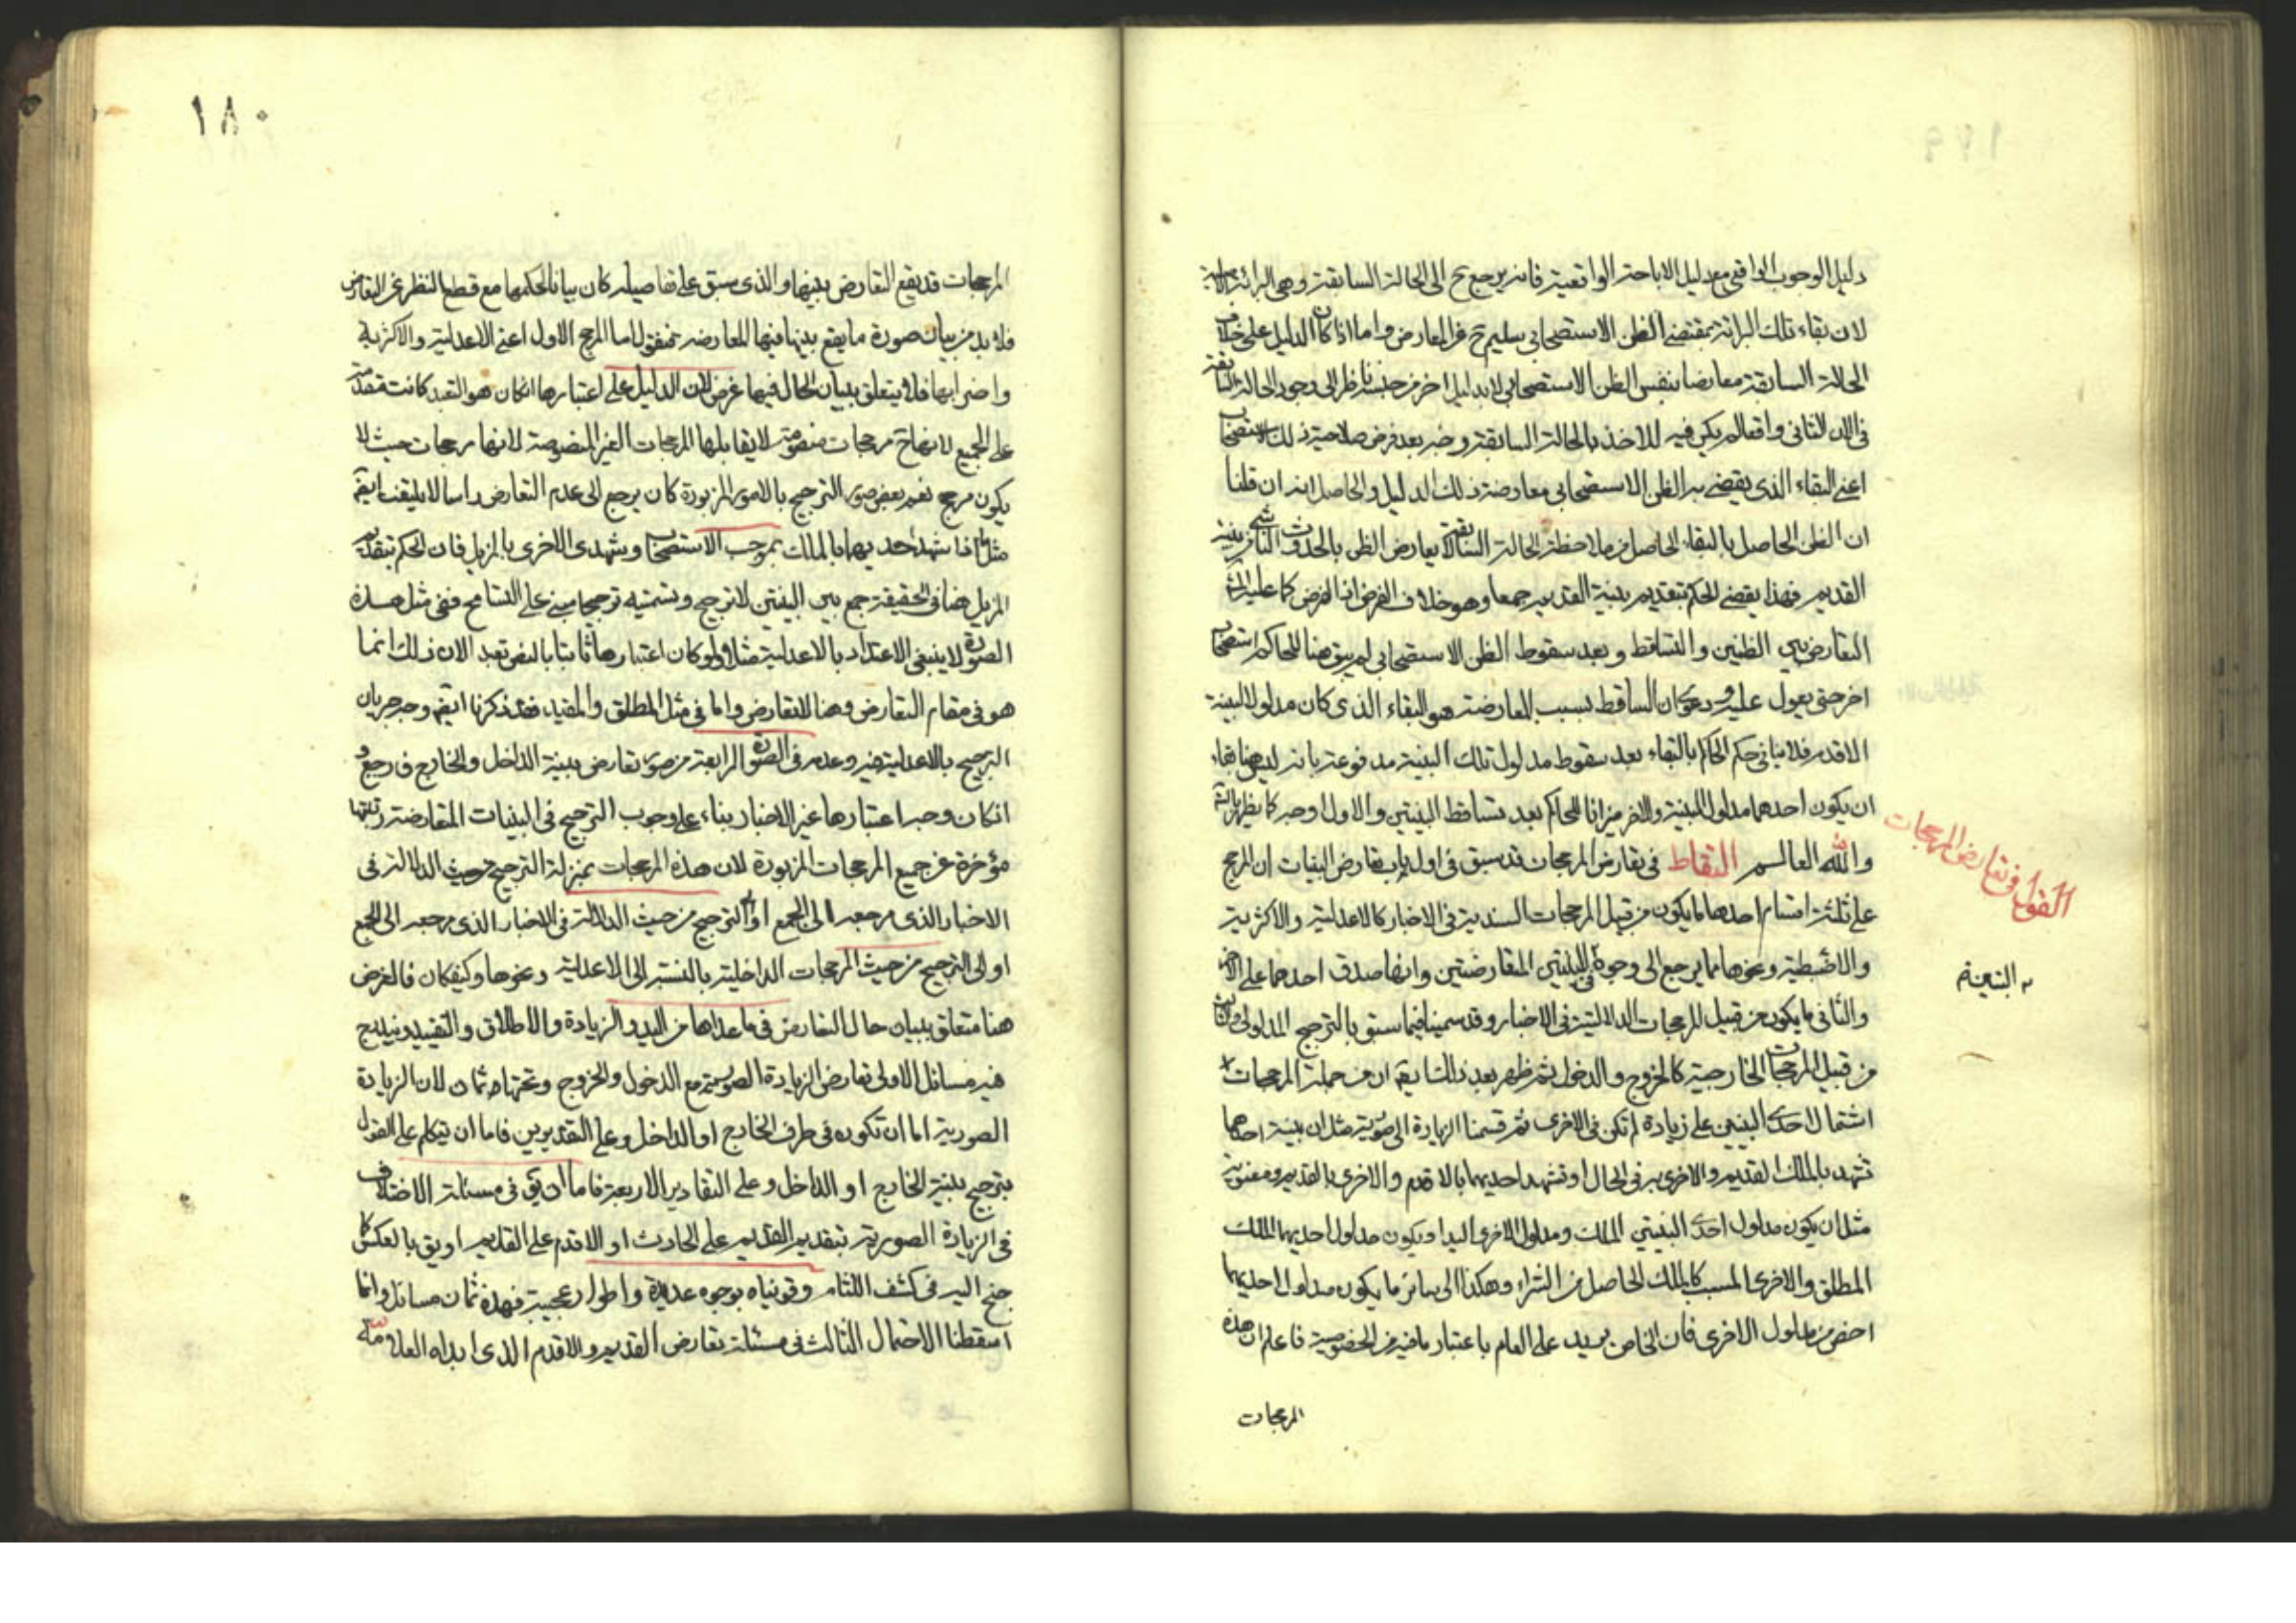 دليل الوجوب الواقعي مع دليل الاباحة الواقعية فانه يرجع ح الى الحالة السابقة وهى البرائة الاصلية
لان بقاء تلك البرائة بمقتضى الظن الاستصحابى سليم ح عن المعارض واما اذا كان الدليل على خلاف
الحالة السابقة معارضا بنفس الظن الاستصحابى لا بدليل اخر من جنسه ناظر الى وجود الحالة السابقة
فى الان الثانى واقعا لم يكن فيه للاخذ بالحالة السابقة وجه بعد فرض صلاحية ذلك الاستصحاب
اعنى البقاء الذى يقضى به الظن الاستصحابى معارضة ذلك الدليل والحاصل انه ان قلنا
ان الظن الحاصل بالبقاء الحاصل من ملاحظة الحالة السابقة لا يعارض الظن بالحدوث الناشى من بينة
القديم فهذا يقضى الحكم بتقديم بينة القديم جمعا وهو خلاف الفرض اذ الفرض كما عليه
التعارض بين الظنين والتساقط وبعد سقوط الظن الاستصحابى لم يبق هنا للحاكم استصحاب
اخر حتى يعول عليه ودعوى ان الساقط بسبب المعارضة هو البقاء الذى كان مدلولا لبينة
الاقدم فلا ينافى حكم الحاكم بالبقاء بعد سقوط مدلول تلك البينة مدفوعة بانه ليس هنا بقاءان
ان يكون احدهما مدلول البينة والاخر ميزانا للحاكم بعد تساقط البينتين والاول اوجه كما يظهر بالتامل
والله العالم التقاط فى تعارض المرجحات قد سبق فى اول باب تعارض البينات ان المرجح
على ثلثة اقسام احدها ما يكون من قبيل المرجحات السندية فى الاخبار كالاعدلية والاكثرية
والاضبطية ونحوها مما يرجع الى وجوه فى البينتين المتعارضتين واوصاف صدق احدهما على الاخر
والثانى ما يكون من قبيل المرجحات الدلالتية فى الاخبار وقد سميناه فيما سبق بالترجيح المدلولى والثالث
من قبيل المرجحات الخارجية كالخروج والدخول ثم ظهر بعد ذلك ايضا ان من جملة المرجحات
اشتمال احدى البينتين على زيادة لم تكن فى الاخرى ثم قسمنا الزيادة الى صورية مثل ان بينة احدهما
تشهد بالملك القديم والاخرى به فى الحال او تشهد احديهما بالاقدم والاخرى بالقديم ومعنوية
مثل ان يكون مدلول احدى البينتين الملك ومدلول الاخرى اليد او يكون مدلول احديهما الملك
المطلق والاخرى المسبب كالملك الحاصل من الشراء وهكذا الى سائر ما يكون مدلول احديهما
اخص من مدلول الاخرى فان الخاص يزيد على العام باعتبار ما فيه من الخصوصية فاعلم ان هذه
المرجحات
القول فى تعارض المرجحات
١٧٩
١٨٠
المرجحات قد يقع التعارض بينها والذى سبق على تفاصيله كان بيانا لحكمها مع قطع النظر عن التعارض
فلا بد من بيان صورة ما يقع بينها فيها المعارضة فنقول اما المرجح الاول اعنى الاعدلية والاكثرية
واضرابها فلا يتعلق ببيان الحال فيها غرض لان الدليل على اعتبارها ان كان هو التعبد كانت مقدمة
على الجميع لانها ح مرجحات منصوصة لا يقابلها المرجحات الغير المنصوصة لانها مرجحات حيث لا
يكون مرجح نعم بعض صور الترجيح بالامور المزبورة كان يرجع الى عدم التعارض راسا لا يلتفت ايضا
مثل ما اذا شهد احديهما بالملك بموجب الاستصحاب ويشهد الاخرى بالمزيل فان الحكم بتقديم
المزيل هنا فى الحقيقة جمع بين البينتين لا ترجيح وتسميته ترجيحا مبنى على التسامح ففى مثل هذه
الصورة لا ينبغى الاعتداد بالاعدلية مثلا ولو كان اعتبارها ثابتا بالنص تعبدا لان ذلك انما
هو فى مقام التعارض وهنا لا تعارض واما فى مثل المطلق والمقيد فقد ذكرنا ايضا وجه جريان
الترجيح بالاعدلية فيه وعدمه فى الصورة الرابعة من صور تعارض بينة الداخل والخارج فراجع و
ان كان وجه اعتبارها غير الاخبار بناء على وجوب الترجيح فى البينات المتعارضة رتبتها
مؤخرة عن جميع المرجحات المزبورة لان هذه المرجحات بمنزلة الترجيح من حيث الدلالة فى
الاخبار الذى مرجعه الى الجمع اذ الترجيح من حيث الدلالة فى الاخبار الذى مرجعه الى الجمع
اولى الترجيح من حيث المرجحات الداخلية بالنسبة الى الاعدلية ونحوها وكيف كان فالغرض
هنا متعلق ببيان حال التعارض فى ما عداها من اليد والزيادة والاطلاق والتقييد وفيه
فيه مسائل الاولى تعارض الزيادة الصورية مع الدخول والخروج وتحتها ثمان لان الزيادة
الصورية اما ان تكون فى طرف الخارج او الداخل وعلى التقديرين فاما ان نتكلم على القول
بترجيح بينة الخارج او الداخل وعلى التقادير الاربعة فاما ان يق فى مسئلة الاختلاف
فى الزيادة الصورية بتقديم القديم على الحادث او الاقدم على القديم او يق بالعكس كما
جنح اليه فى كشف اللثام وقويناه بوجوه عديدة واطوار عجيبة فهذه ثمان مسائل وانما
اسقطنا الاحتمال الثالث فى مسئلة تعارض القديم والاقدم الذى ابداه العلامة